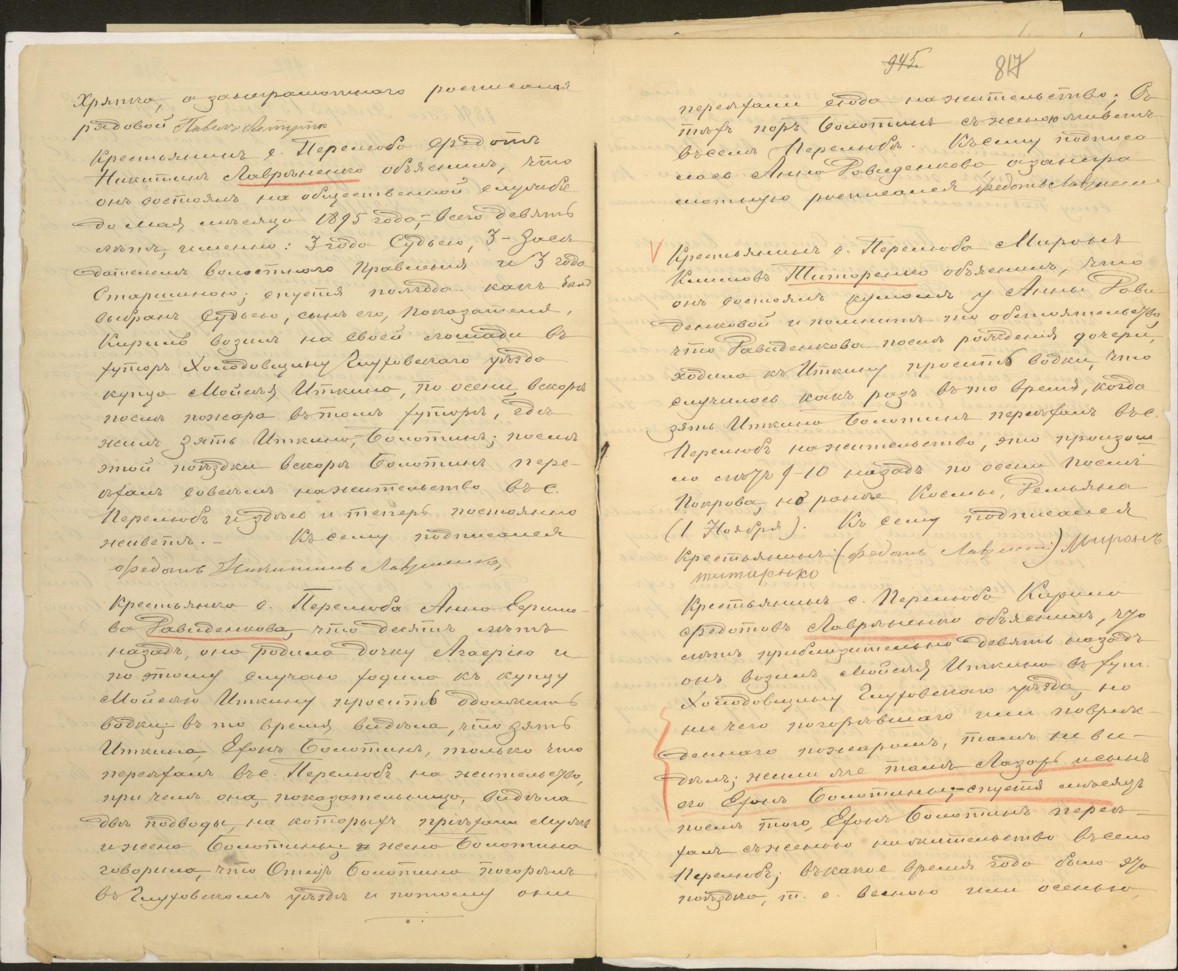 Хрятко, а за неграмотного росписался
рядовой Павелъ
Крестьянинъ с. Перелюба Ѳедотъ
Никитинъ Лавриненко объяснилъ, что
онъ состоялъ на общественной службѣ
до мая мѣсяца 1895 года, всего девять
лѣтъ, именно: 3 года Судьею, 3 - Засѣ
дателемъ Волостного Правленія и 3 года
Старшиною; спустя полгода какъ былъ
выбранъ Судьею, сынъ его, показателя,
Кирилъ возилъ на своей лошади въ
хуторъ Холодовщину Глуховскаго уѣзда
купца Мойсея Иткина, по осени, вскорѣ
послѣ пожара въ томъ хуторѣ, гдѣ
жилъ зять Иткина, Болотинъ; послѣ
этой поѣздки вскорѣ Болотинъ пере-
ѣхалъ совсѣмъ на жительство въ с.
Перелюбъ и здѣсь и теперь постоянно
живетъ. - Къ сему подписался
Ѳедотъ Никитинъ Лавриненко,
Крестьянка с. Перелюба Анна Ефимо-
ва Равиденкова, что десять лѣтъ
назадъ, она родила дочку Агафію и
по этому случаю ходила къ купцу
Мойсею Иткину просить одолжить
водки; въ то время видѣла, что зять
Иткина, Ефонъ Болотинъ, только что
переѣхалъ въ с. Перелюбъ на жительство,
при чемъ она, показательница, видѣла
двѣ подводы, на которыхъ пріѣхали мужъ
и жена Болотины; и жена Болотина
говорила, что Отецъ Болотина погорѣлъ
въ Глуховскомъ уѣздѣ и потому они
945. 817
переѣхали сюда на жительство; Съ
тѣхъ поръ Болотинъ съ женою живетъ
въ селѣ Перелюбѣ. Къ сему подписа
лась Анна Равиденкова а за негра
мотную росписался Ѳедотъ Лавринен
Крестьянинъ с. Перелюба Миронъ
Климовъ Титоренко объяснилъ, что
онъ состоялъ кумомъ у Анны Рави
денковой и помнитъ то обстоятельство,
что Равиденкова послѣ рожденія дочери,
ходила къ Иткину просить водки, что
случилось какъ разъ въ то время, когда
зять Иткина Болотинъ переѣхалъ въ с.
Перелюбъ на жительство, это произош-
ло лѣтъ 9-10 назадъ по осени послѣ
Покрова, но ранѣе Космы, Демьяна
(1 Ноября). Къ сему подписался
Крестьянинъ (Ѳедотъ) Миронъ
титаренко
Крестьянинъ с. Перелюба Кирило
Ѳедотовъ Лавриненко объяснилъ, что
лѣтъ приблизительно девять назадъ
онъ возилъ Мойсея Иткина въ хут.
Холодовщину Глуховскаго уѣзда, но
ни чего погорѣвшаго или повреж-
деннаго пожаромъ, тамъ не ви-
дѣлъ; жили же тамъ Лазарь и сынъ
его Ефонъ Болотины; спустя мѣсяцъ
послѣ того, Ефонъ Болотинъ переѣ-
халъ съ женою на жительство въ село
Перелюбъ; въ какое время года была эта
поѣздка, т. е. весною или осенью,